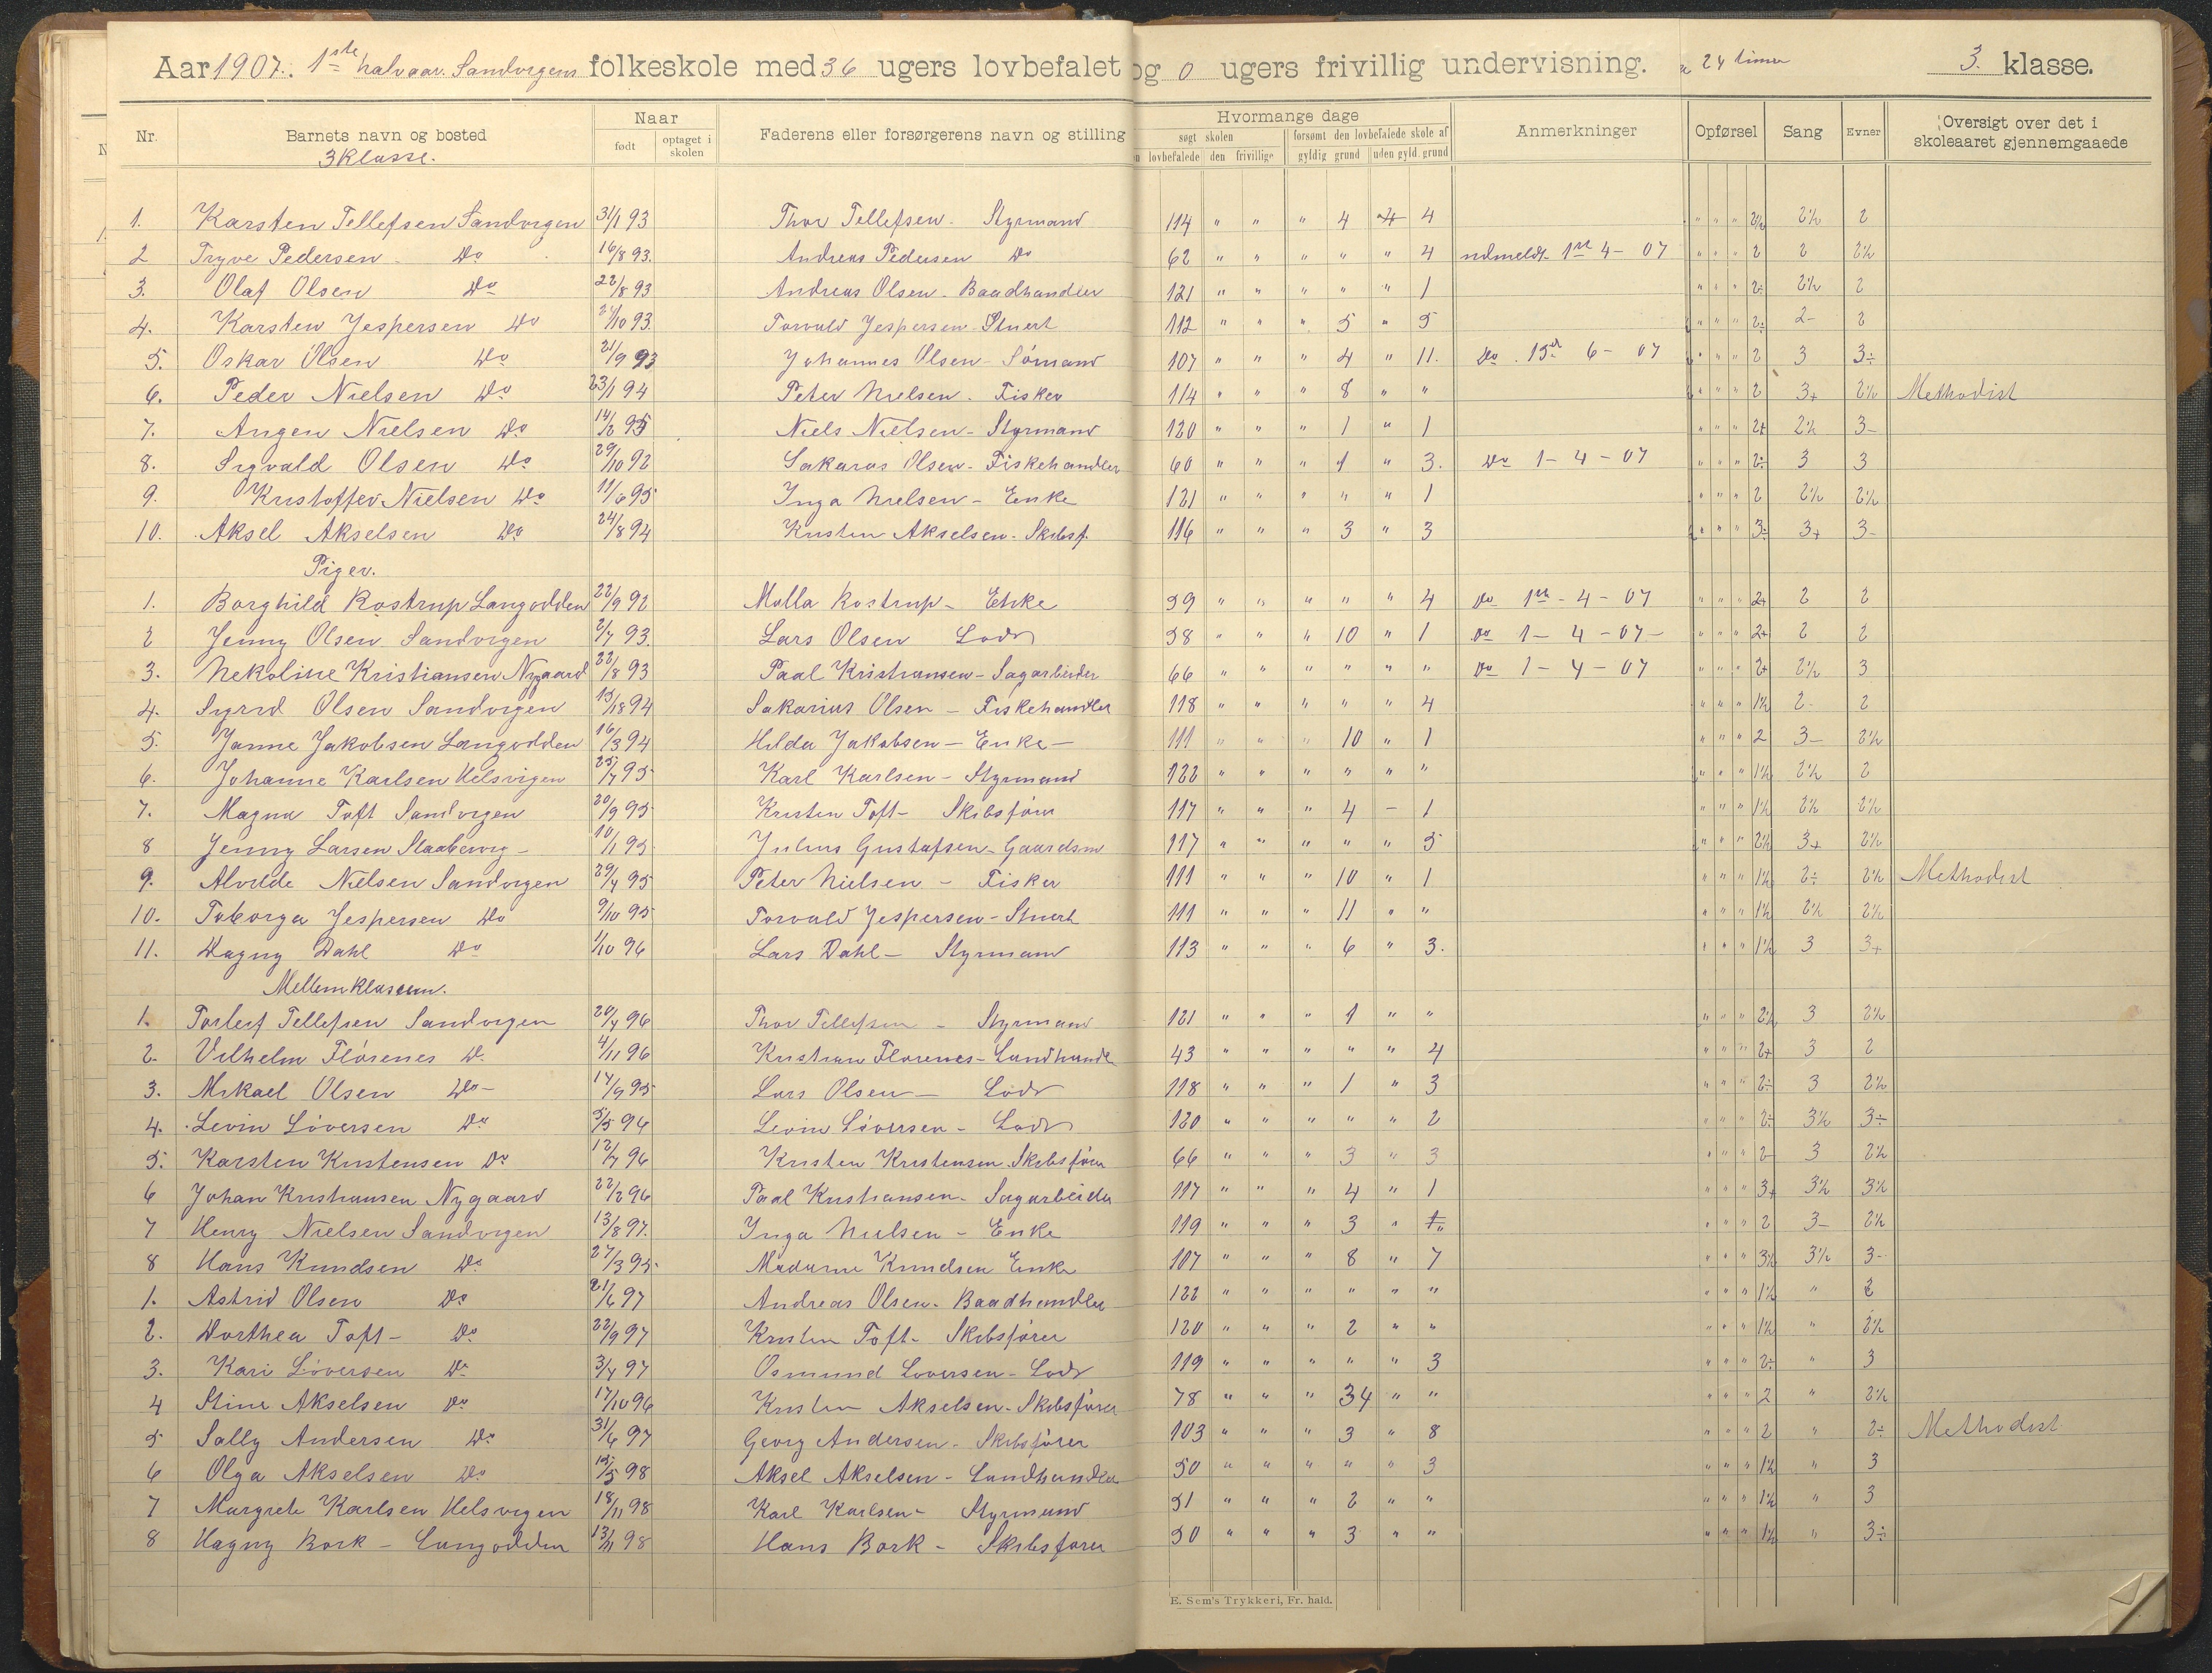 Aar 1907. 1ste halvaar. Sandvigens folkeskole med 36 ugers lovbefalet og 0 ugers frivillig undervisning. a 24 timer 3. klasse.
Nr. Barnets navn og bosted Naar Faderens eller forsørgerens navn og stilling Hvormange dage Anmerkninger Opførsel Sang Evner Oversigt over det i skoleaaret gjennemgaaede
født optaget i skolen søgt skolen forsømt den lovbefalede skole af
lovbefalede den frivillige gyldig grund uden gyld. grund
3 Klasse.
1. Karsten Tellefsen Sandvigen 31/1 93 Thor Tellefsen - Styrmand 114 " " " 4 " 4 " " " 2½ 2½ 2
2 Trygve Pedersen - Do 16/8 93. Andreas Pedersen Do 62 " " " " " 4 udmeldt 1ste 4 - 07 " " " 2 2 2½
3. Olaf Olsen Do 22/8 93 Andreas Olsen - Baadhandler 121 " " " " " 1 " " " 2÷ 2½ 2
4. Karsten Jespersen Do /10 93. Torvald Jespersen - Stuert 112 " " " 5 " 5 " " " 2÷ 2- 2
5. Oskar Olsen Do 21/9 93 Johannes Olsen - Sømand 107 " " " 4 " 11. Do. 15de 6 - 07 " " " 2 3 3÷
6. Peder Nielsen Do 23/1 94 Peter Nielsen - Fisker 114 " " " 8 " " " " " 2 3+ 2½ Methodist
7. Angen Nielsen Do 14/2 95 Niels Nielsen - Styrmand 120 " " " 1 " 1 " " " 2+ 2½ 3-
8. Sigvald Olsen Do 29/10 92 Sakarias Olsen - Fiskehandler 60 " " " 1 " 3. Do 1 - 4 - 07 " " " 2÷ 3 3
9. Kristoffer Nielsen Do 11/6 95 Inga Nielsen - Enke 121 " " " " " 1 " " " 2 2½ 2½
10. Aksel Akselsen Do 24/8 94 Kristen Akselsen - Skibsf. 116 " " " 3 " 3 " " " 3÷ 3+ 3-
Piger.
1. Borghild Rostrup Langodden 22/9 92 Malla Rostrup - Enke 59 " " " " " 4 Do 1ste - 4 - 07 " " " 2+ 2 2
2 Jenny Olsen Sandvigen 2/7 93. Lars Olsen Lods 58 " " " 10 " 1 Do 1 - 4 - 07 - " " " 2+ 2 2
3. Nekoline Kristiansen Nygaard 22/8 93 Paal Kristiansen - Sagarbeider 66 " " " " " " Do 1 - 4 - 07 " " " 2+ 2½ 3
4. Sigrid Olsen Sandvigen 94 Sakarius Olsen - Fiskehandler 118 " " " " " 4 " " " 1½ 2. 2
5. Janne Jakobsen Langodden 16/3 94 Hilda Jakobsen - Enke - 111 " " " 10 " 1 " " " 2 3- 2½
6. Johanne Karlsen Helsvigen 25/7 95 Karl Karlsen - Styrmand 122 " " " " " " " " " 1½ 2½ 2
7. Magna Toft Sandvigen 20/9 95 Kristen Toft - Skibsfører 117 " " " 4 - 1 " " " 1½ 2½ 2½
8 Jenny Larsen Slaabervig - 10/1 95 Julius Gustafsen - Gaardsm 117 " " " " " 5 " " " 2½ 3+ 2½
9. Alvilde Nielsen Sandvigen 29/4 95 Peter Nielsen - Fisker 111 " " " 10 " 1 " " " 1½ 2÷ 2½ Methodist
10. Toborga Jespersen Do 9/10 95 Torvald Jespersen - Stuert 111 " " " 11 " " " " " 1½ 2½ 2½
11. Dagny Dahl Do 1/10 96 Lars Dahl - Styrmand 113 " " " 6 " 3. " " " 1½ 3 3+
Mellemklassen.
1. Torleif Tellefsen Sandvigen 20/4 96 Thor Tellefsen - Styrmand 121 " " " 1 " " " " " 2½ 3 2½
2. Vilhelm Florenes Do 4/11 96 Kristian Florenes - Landhandl 43 " " " " " 4 " " " 2+ 3 2
3. Mikael Olsen Do - 14/9 95 Lars Olsen - Lods 118 " " " 1 " 3 " " " 2÷ 3 2½
4. Levin Löversen Do 5/5 96 Levin Löversen - Lods 120 " " " " " 2 " " " 2÷ 3½ 3÷
5. Karsten Kristensen Do 12/7 96 Kristen Kristensen Skibsfører 66 " " " 3 " 3 " " " 2- 3 2½
6 Johan Kristiansen Nygaard 22/2 96 Paal Kristiansen - Sagarbeider 117 " " " 4 " 1 " " " 3+ 3½ 3½
7 Henry Nielsen Sandvigen 13/8 97. Inga Nielsen - Enke 119 " " " 3 " " " " " 2 3- 2½
8 Hans Knudsen Do 27/3 95. Madame Knudsen Enke 107 " " " 8 " 7 " " " 3½ 3½ 3-
1. Astrid Olsen Do 21/6 97 Andreas Olsen - Baadhandler 122 " " " " " " " " " 1½ " 2
2. Dorthea Toft - Do 22/9 97 Kristen Toft - Skibsfører 120 " " " 2 " " " " " 1½ " 2½
3. Kari Löversen Do 3/4 97 Osmund Loversen - Lods 119 " " " " " 3 " " " 2÷ " 3
4 Stine Akselsen Do 17/10 96 Kristen Akselsen - Skibsfører 78 " " " 34 " " " " " 2 " 2½
5 Sally Andersen Do 31/6 97 Georg Andersen - Skibsfører 103 " " " 3 " 8 " " " 2 " 2÷ Methodist
6 Olga Akselsen Do 15/5 98 Aksel Akselsen - Landhandler 50 " " " " " 3 " " " 1½ " 3
7 Margrete Karlsen Helsvigen 18/11 98 Karl Karlsen - Styrmand 51 " " " 2 " " " " " 1½ " 3
8 Dagny Bork - Langodden 13/11 98 Hans Bork - Skibsfører 50 " " " 3 " " " " " 1½ " 3÷
E. Sem's Trykkeri, Fr. hald.